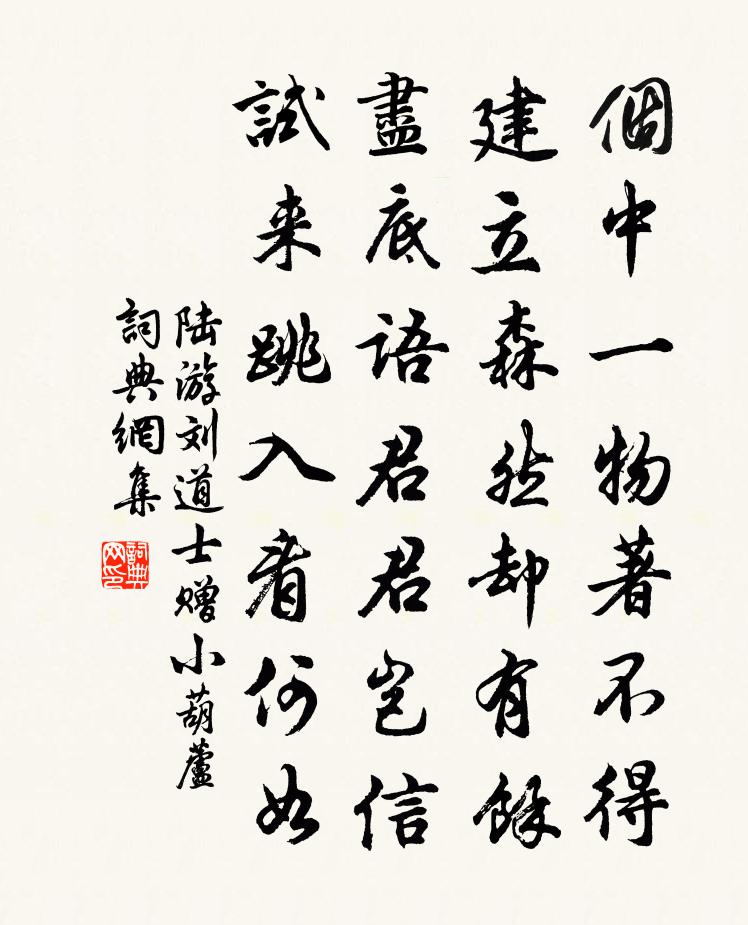 個中一物著不得
建立森然却有餘
盡底語君君豈信
試来跳入看何如
陆游刘道士赠小葫蘆
詞典網集
詞典网印